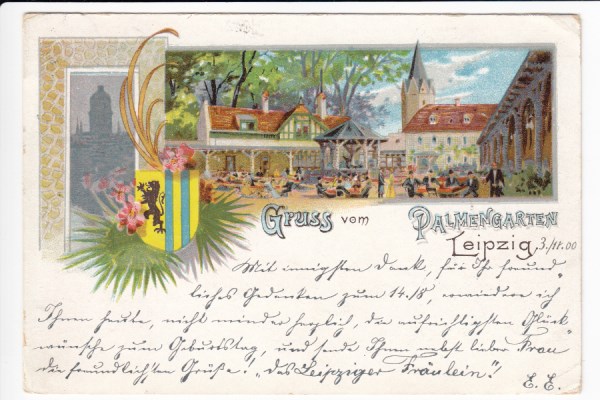 Gruss vom Palmengarten
Leipzig, 3./11.00
Mit innigsten Dank, für Ihr freund-
liches Gedenken zum 14./8, erwidere ich
Ihnen heute, nicht minder herzlich, die aufrichtigsten Glück-
wünsche zum Geburtstag, und sende Ihnen nebst lieber Frau
die freundlichsten Grüße! „Das Leipziger Fräulein“!
E. E.